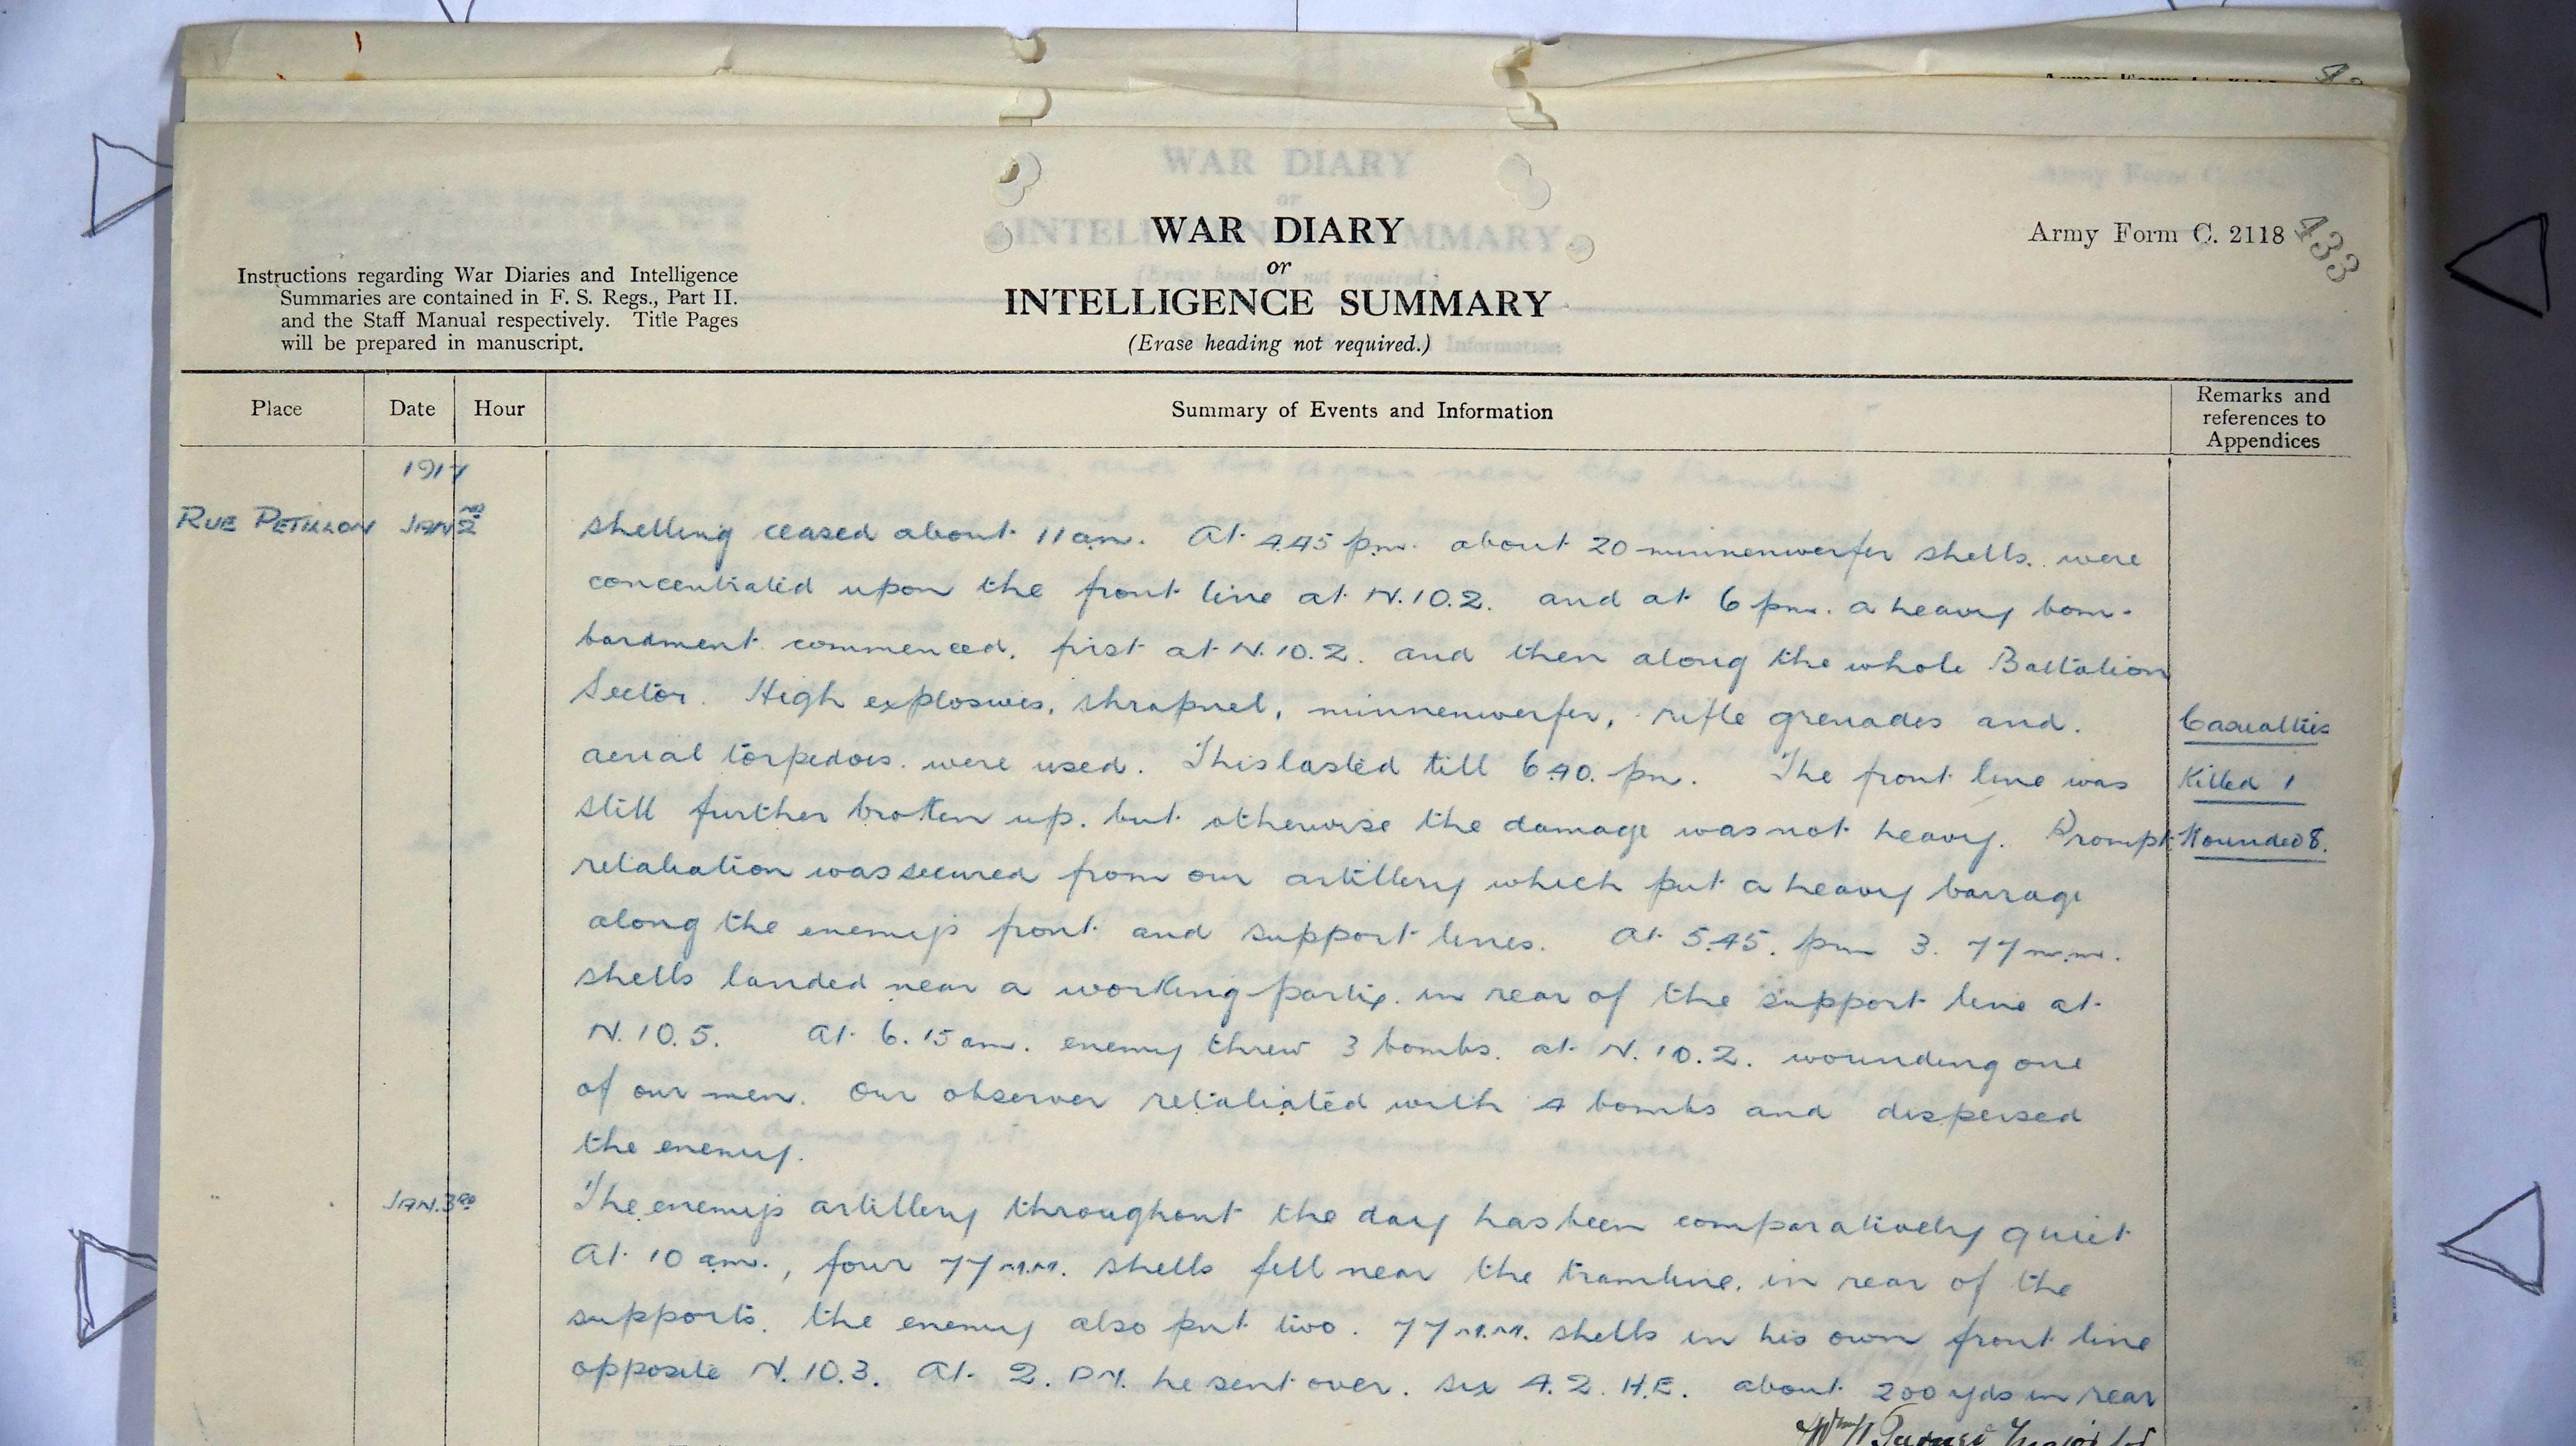 WAR DIARY
or
INTELLIGENCE SUMMARY
(Erase heading not required.)
Army Form C. 2118
433
Instructions regarding War Diaries and Intelligence
Summaries are contained in F. S. Regs., Part II.
and the Staff Manual respectively. Title Pages
will be prepared in manuscript.
Place Date Hour Summary of Events and Information Remarks and references to Appendices
1917
RUE PETILLON JAN 2nd shelling ceased about 11 am. At 4.45 pm. about 20 minnenwerfer shells. were
concentrated upon the front line at N.10.2. and at 6 pm. a heavy bom-
bardment commenced. first at N.10.2. and then along the whole Battalion
Sector. High explosives, shrapnel, minnenwerfer, rifle grenades and. Casualties
aerial torpedoes. were used. This lasted till 6.40. pm. The front line was Killed 1
still further broken up. but otherwise the damage was not heavy. Prompt Wounded 8.
retaliation was secured from our artillery which put a heavy barrage
along the enemy's front and support lines. At 5.45. pm 3. 77 m.m.
shells landed near a working party. in rear of the support line at
N.10.5. At 6.15 am. enemy threw 3 bombs. at N.10.2. wounding one
of our men. Our observer retaliated with 4 bombs and dispersed
the enemy.
JAN. 3RD The enemy's artillery throughout the day has been comparatively quiet
At 10 am., four 77 M.M. shells fell near the tramline. in rear of the
supports. the enemy also put two. 77 M.M. shells in his own front line
opposite N.10.3. At 2. P.M. he sent over. six 4.2. H.E. about 200 yds in rear
Major